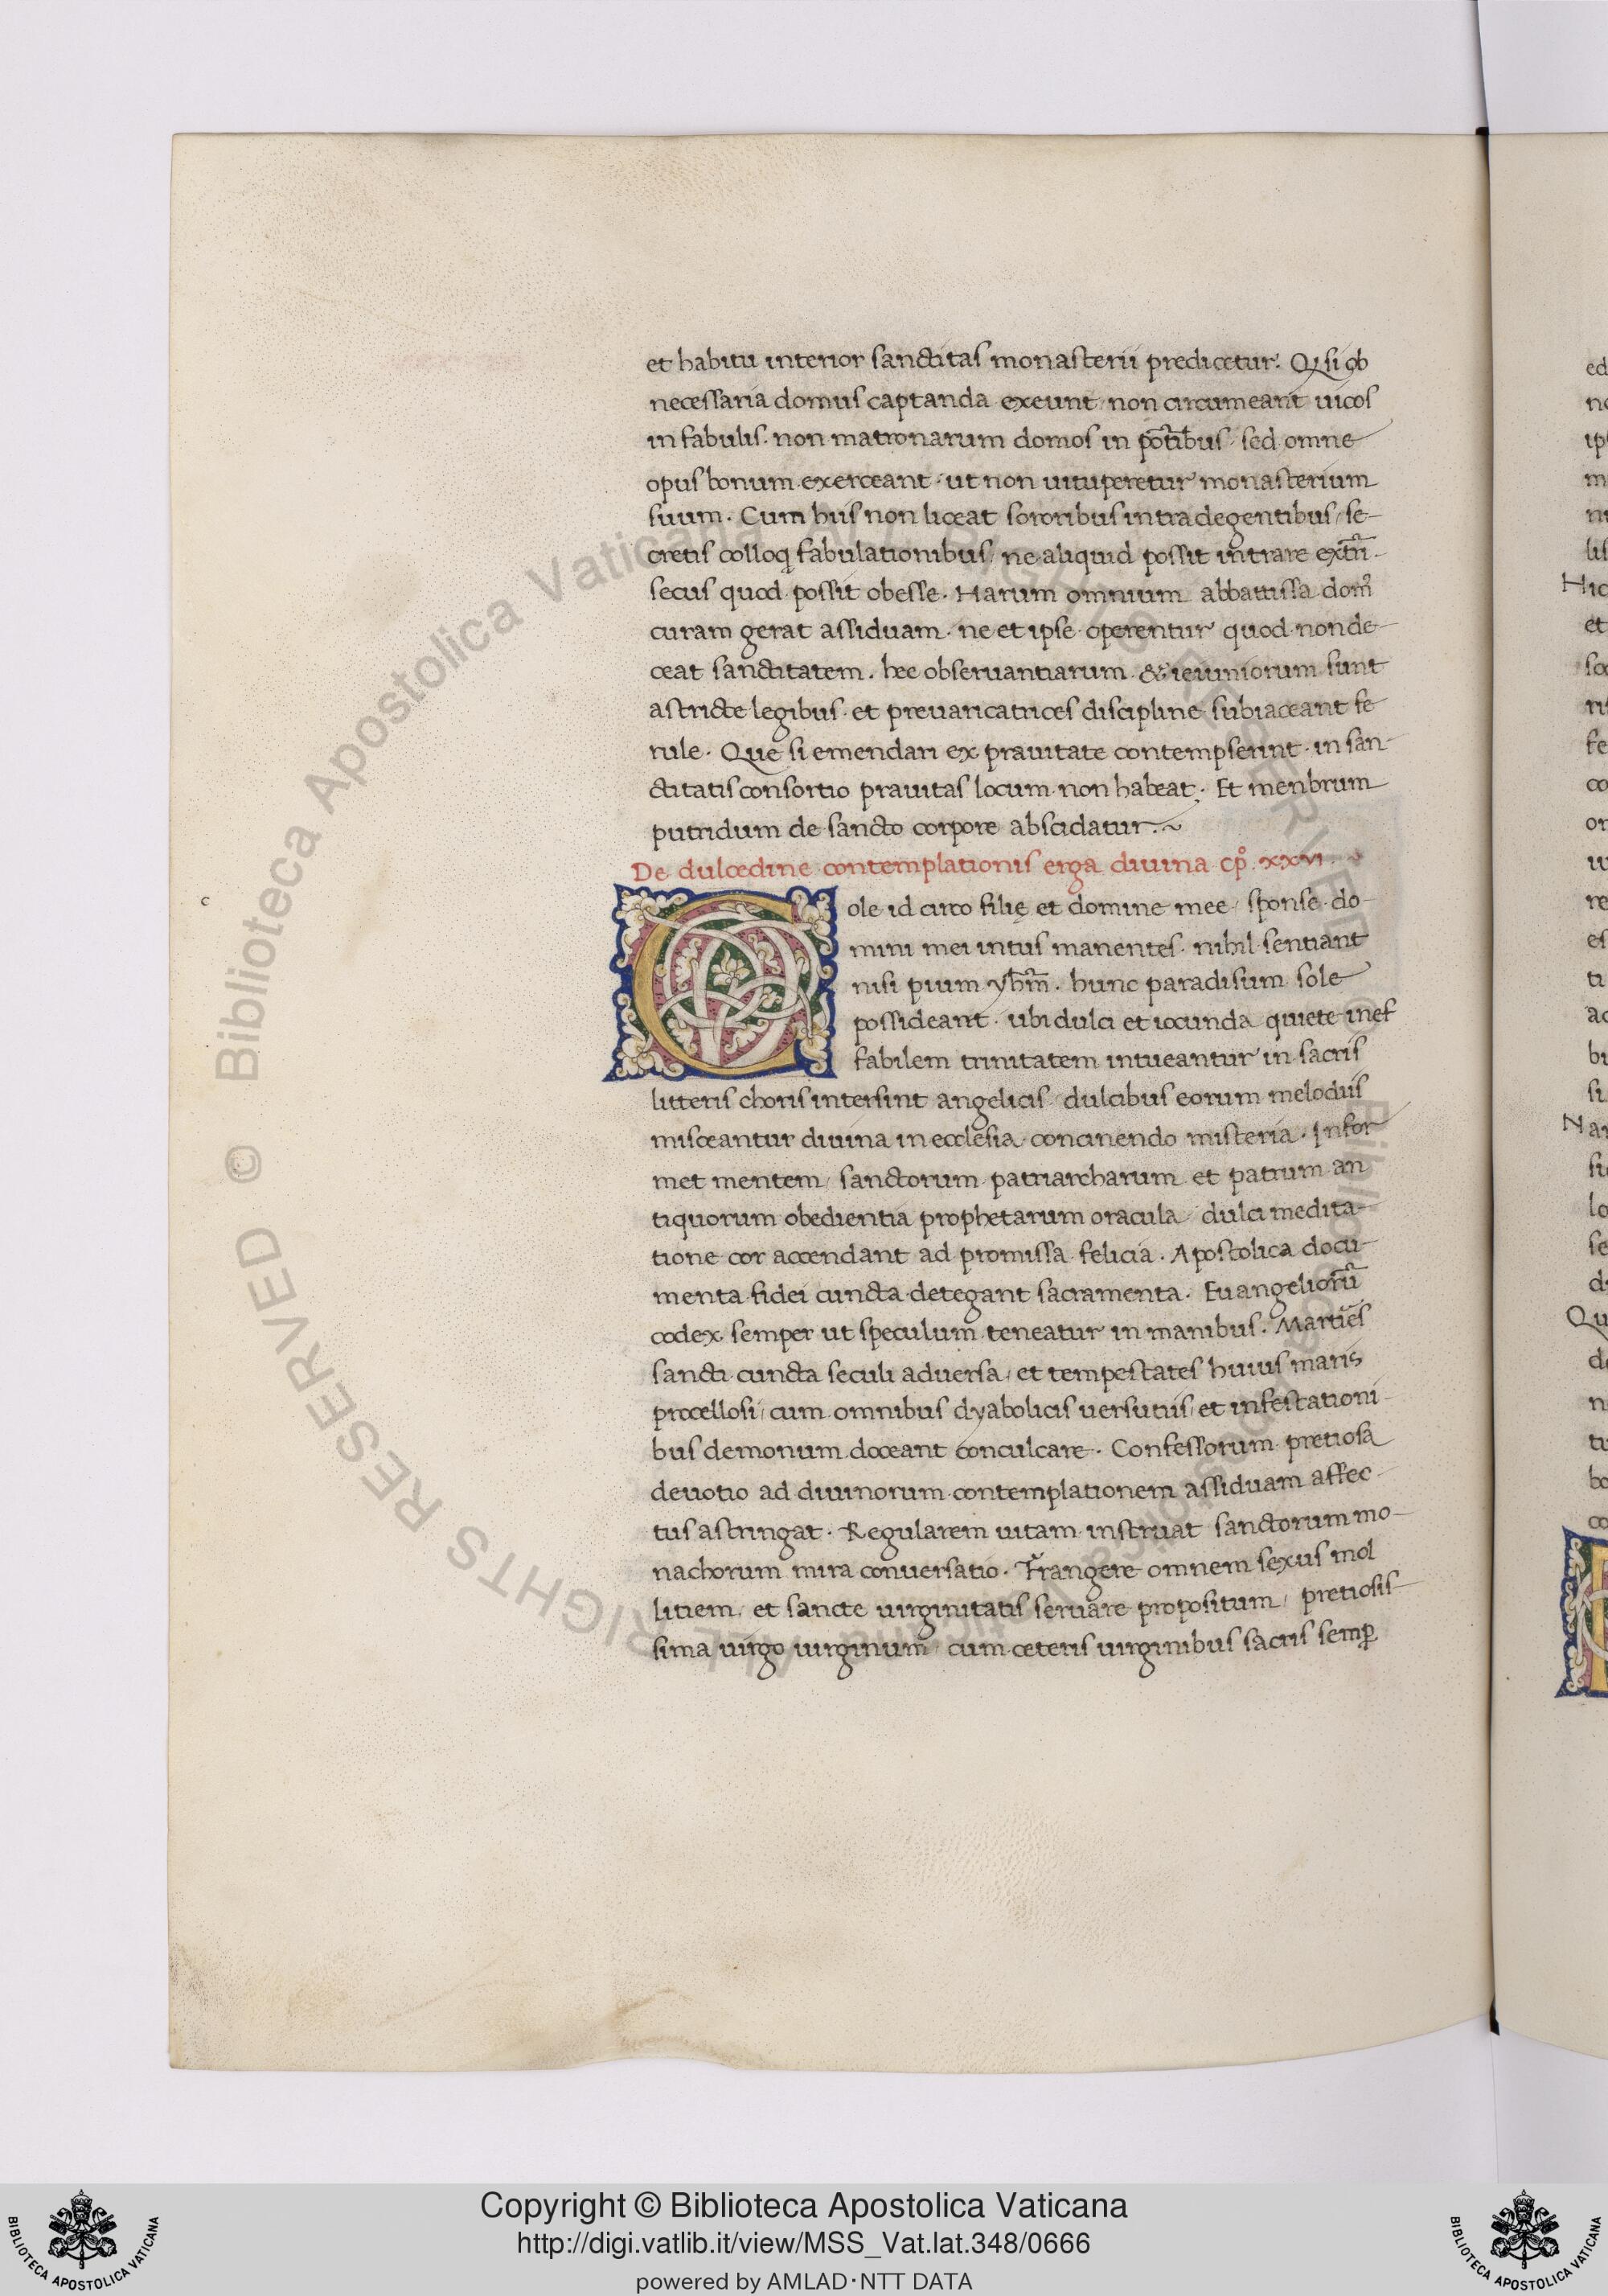 et habitu interior sanctitas monasterii predicetur. Q; si ob
necessaria domus captanda exeunt non circumeant uicos
in fabulis. non matronarum domos in potētibus sed omne
opus bonum exerceant. ut non uituperetur monasterium
suum. Cum hiis non liceat sororibus intra degentibus se-
cretis colloqi fabulationibus, ne aliquid possit intrare extrī-
secus quod possit obesse. Harum omnium abbatissa dom9
curam gerat assiduam. ne et ipse operentur quod non de-
ceat sanctitatem. hee obseruantiarum & ieiuniorum sunt
astricte legibus. et preuaricatrices discipline subiaceant fe
rule. Que si emendari ex prauitate contempserint. in san-
ctitatis consortio prauitas locum non habeat; Et menbrum
putridum de sancto corpore abscidatur.~
De dulcedine contemplationis erga diuina cp̊. xxvi.
ole id circo filię et domine mee, sponse do-
mini mei intus manentes. nihil sentiant
nisi pium yhm̄. hunc paradisum sole
possideant. ubi dulci et iocunda quiete inef
fabilem trinitatem intueantur in sacris
litteris choris intersint angelicis dulcibus eorum melodiis
misceantur diuina in ecclesia concinendo misteria. Infor
met mentem, sanctorum patriarcharum et patrum an
tiquorum obedientia prophetarum oracula dulci medita-
tione cor accendant ad promissa felicia. Apostolica docu-
menta fidei cuncta detegant sacramenta. Euangeliorū
codex semper ut speculum teneatur in manibus. Martires
sancti cuncta seculi aduersa, et tempestates huius maris
procellosi, cum omnibus dyabolicis uersutiis, et infestationi-
bus demonum doceant conculcare. Confessorum pretiosa
deuotio ad diuinorum contemplationem assiduam affec-
tus astringat. Regularem uitam instruat sanctorum mo-
nachorum mira conuersatio. Frangere omnem sexus mol
litiem, et sancte uirginitatis seruare propositum, pretiosis-
sima uirgo uirginum cum ceteris uirginibus sacris semp
c
Hic
et
Nar
Qu
© Biblioteca Apostolica Vaticana ALL RIGHTS RESERVED
Copyright © Biblioteca Apostolica Vaticana
http://digi.vatlib.it/view/MSS_Vat.lat.348/0666
powered by AMLAD·NTT DATA
BIBLIOTECA APOSTOLICA VATICANA
BIBLIOTECA APOSTOLICA VATICANA